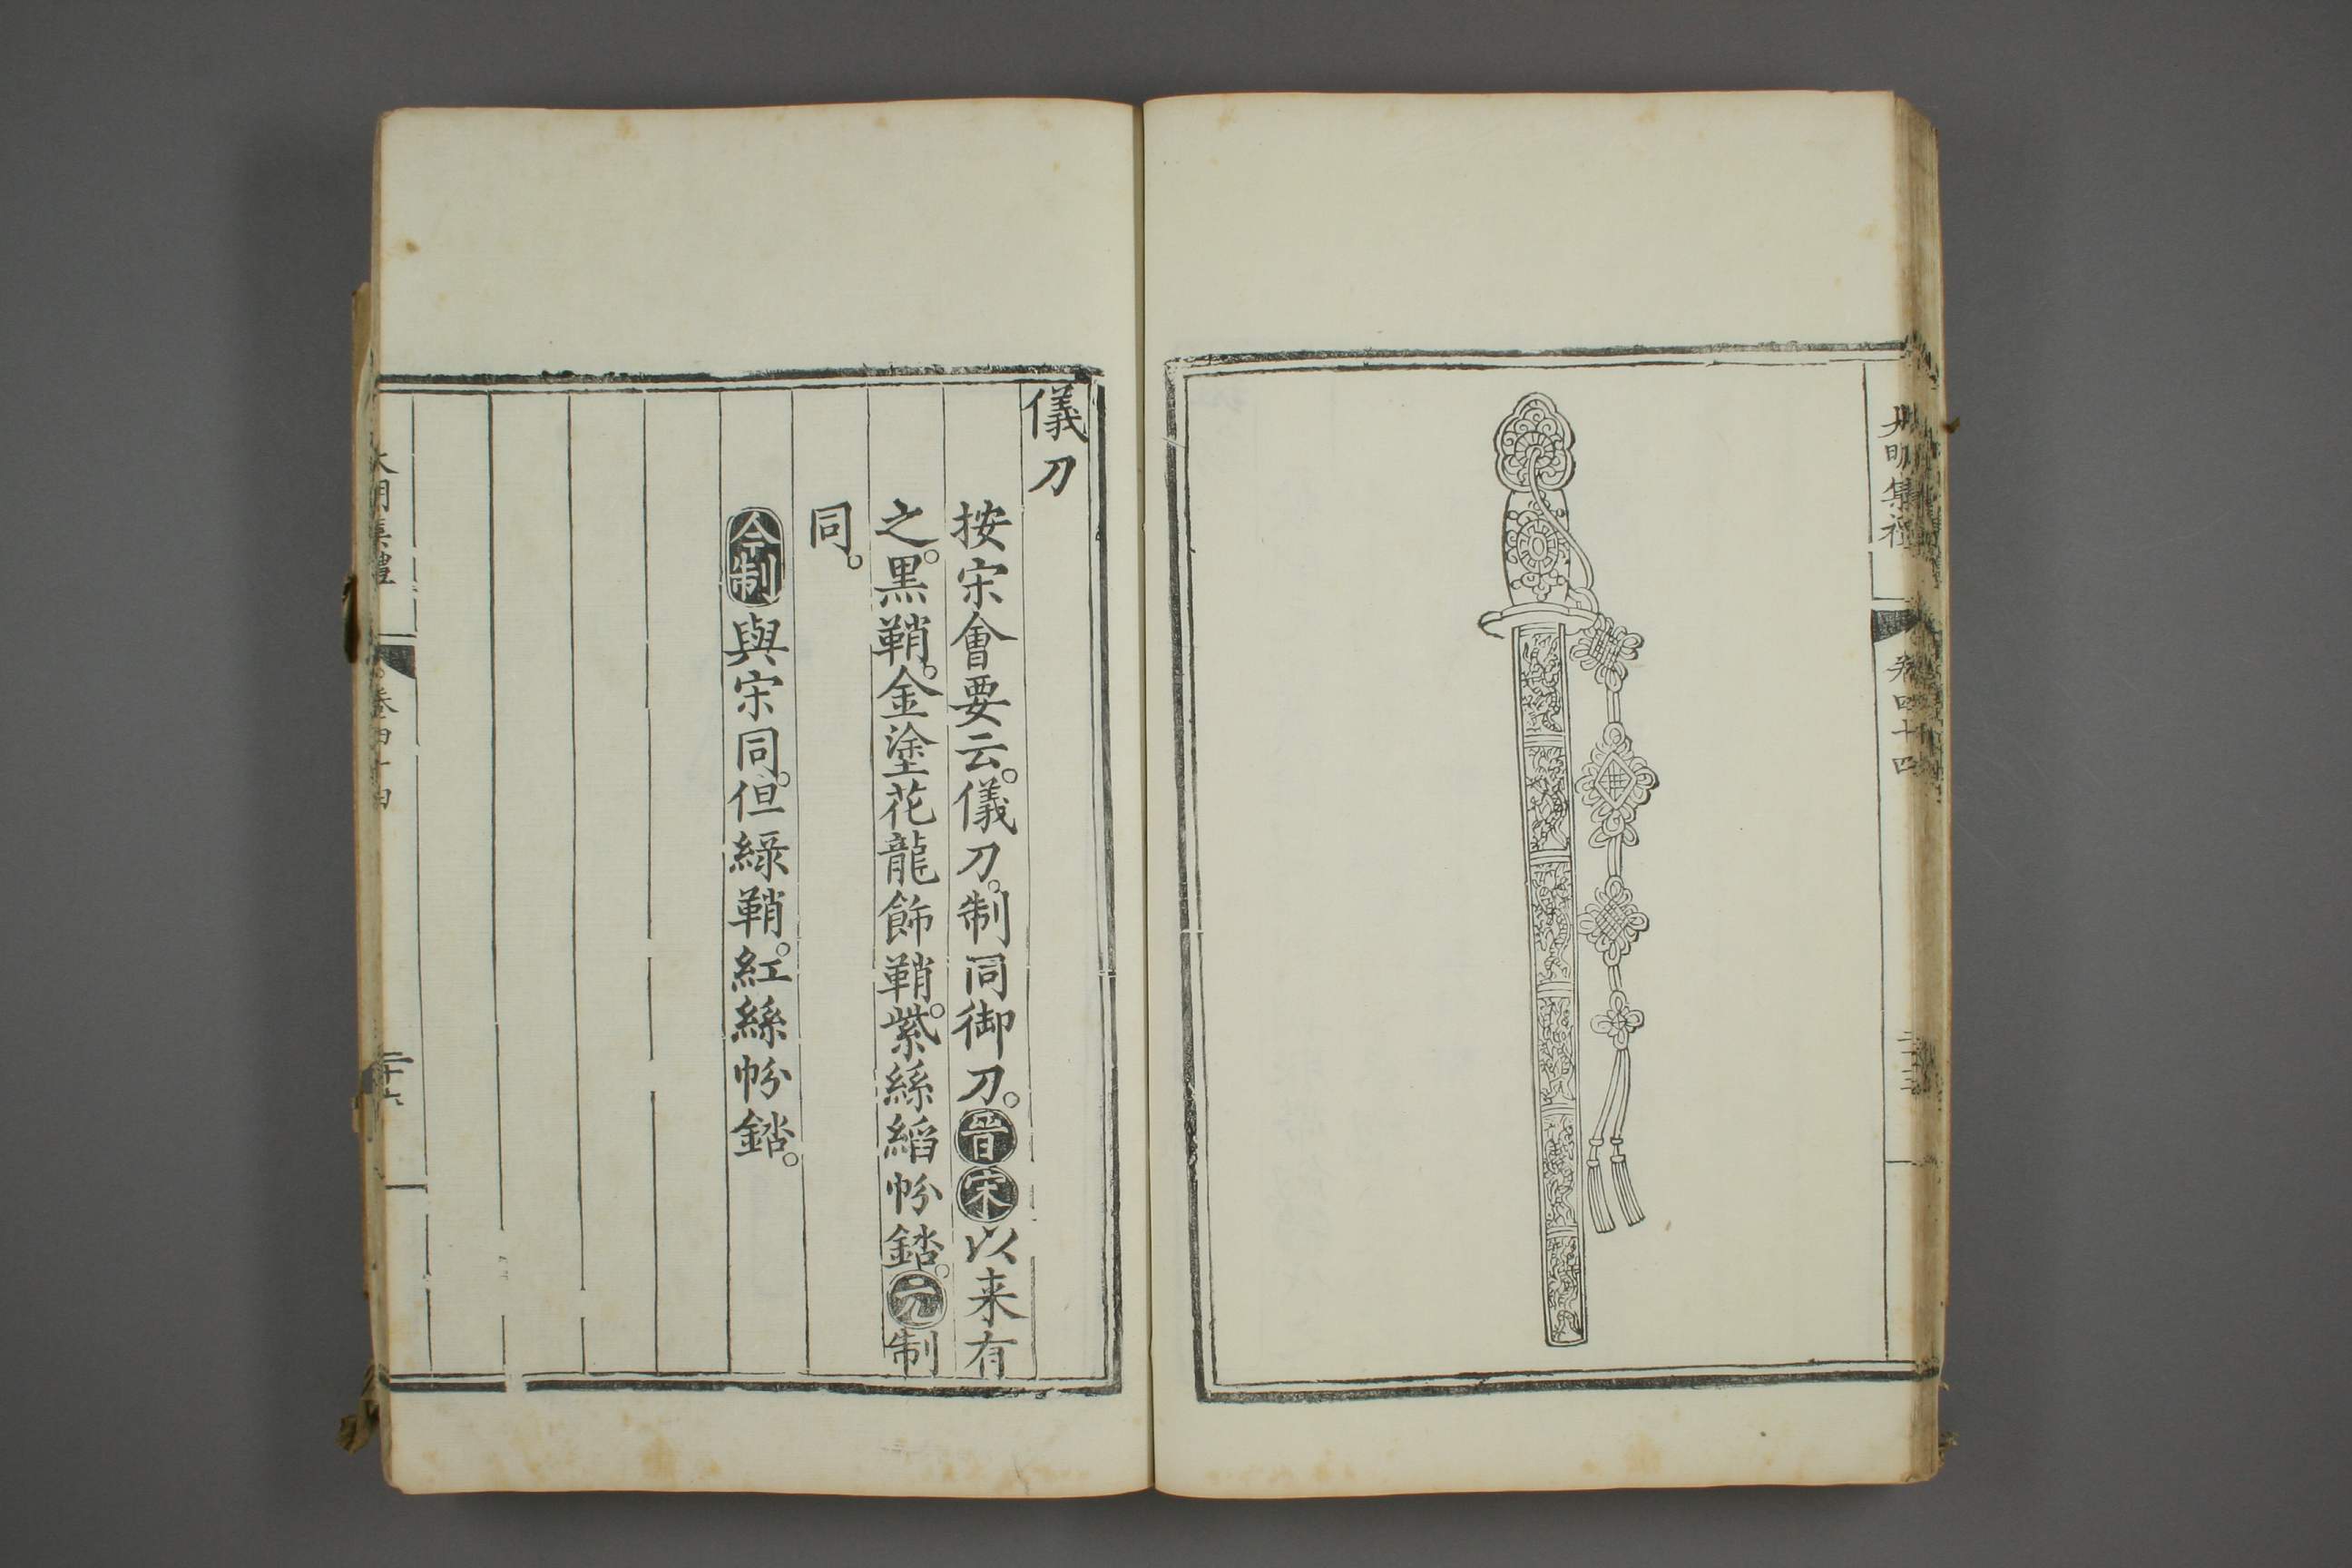 大明集禮 卷四十四
儀刀
按宋會要云。儀刀。制同御刀。晉宋以来有
之。黑鞘。金塗花龍飾鞘。紫絲縚帉錔。元制
同。
今制與宋同。但綠鞘。紅絲帉錔。
大明集禮 卷四十四 二十六